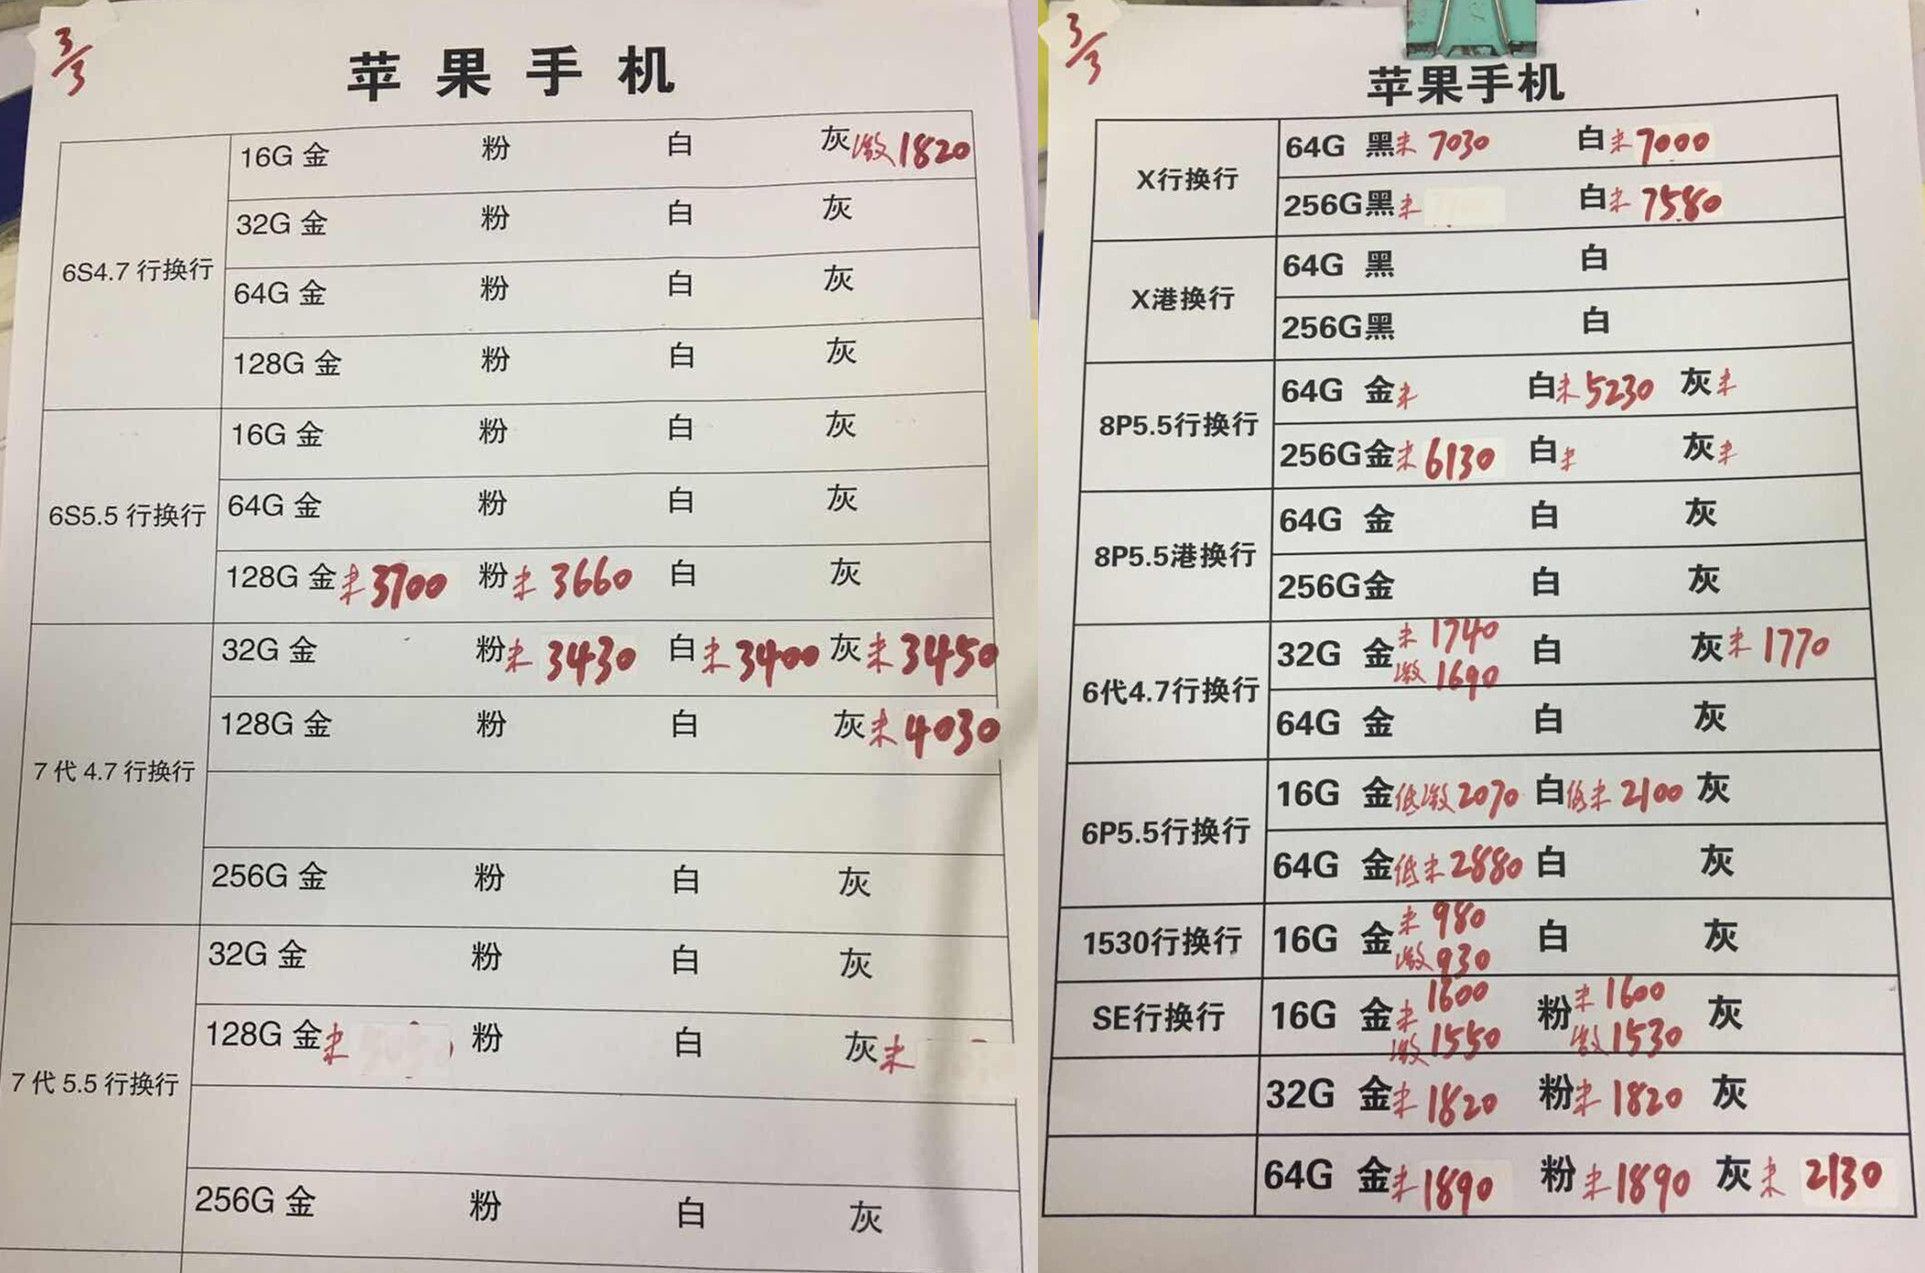 3/3
苹果手机
6S4.7行换行
16G 金 粉 白 灰 激1820
32G 金 粉 白 灰
64G 金 粉 白 灰
128G 金 粉 白 灰
6S5.5行换行
16G 金 粉 白 灰
64G 金 粉 白 灰
128G 金未3700 粉未3660 白 灰
7代4.7行换行
32G 金 粉未3430 白未3400 灰未3450
128G 金 粉 白 灰未4030
256G 金 粉 白 灰
7代5.5行换行
32G 金 粉 白 灰
128G 金未 粉 白 灰未
256G 金 粉 白 灰
3/3
苹果手机
X行换行
64G 黑未7030 白未7000
256G黑未 白未7580
X港换行
64G 黑 白
256G黑 白
8P5.5行换行
64G 金未 白未5230 灰未
256G金未6130 白未 灰未
8P5.5港换行
64G 金 白 灰
256G金 白 灰
6代4.7行换行
32G 金未1740 激1690 白 灰未1770
64G 金 白 灰
6P5.5行换行
16G 金低激2070 白低未2100 灰
64G 金低未2880 白 灰
1530行换行
16G 金未980 激930 白 灰
SE行换行
16G 金未1600 激1550 粉未1600 激1530 灰
32G 金未1820 粉未1820 灰
64G 金未1890 粉未1890 灰未2130